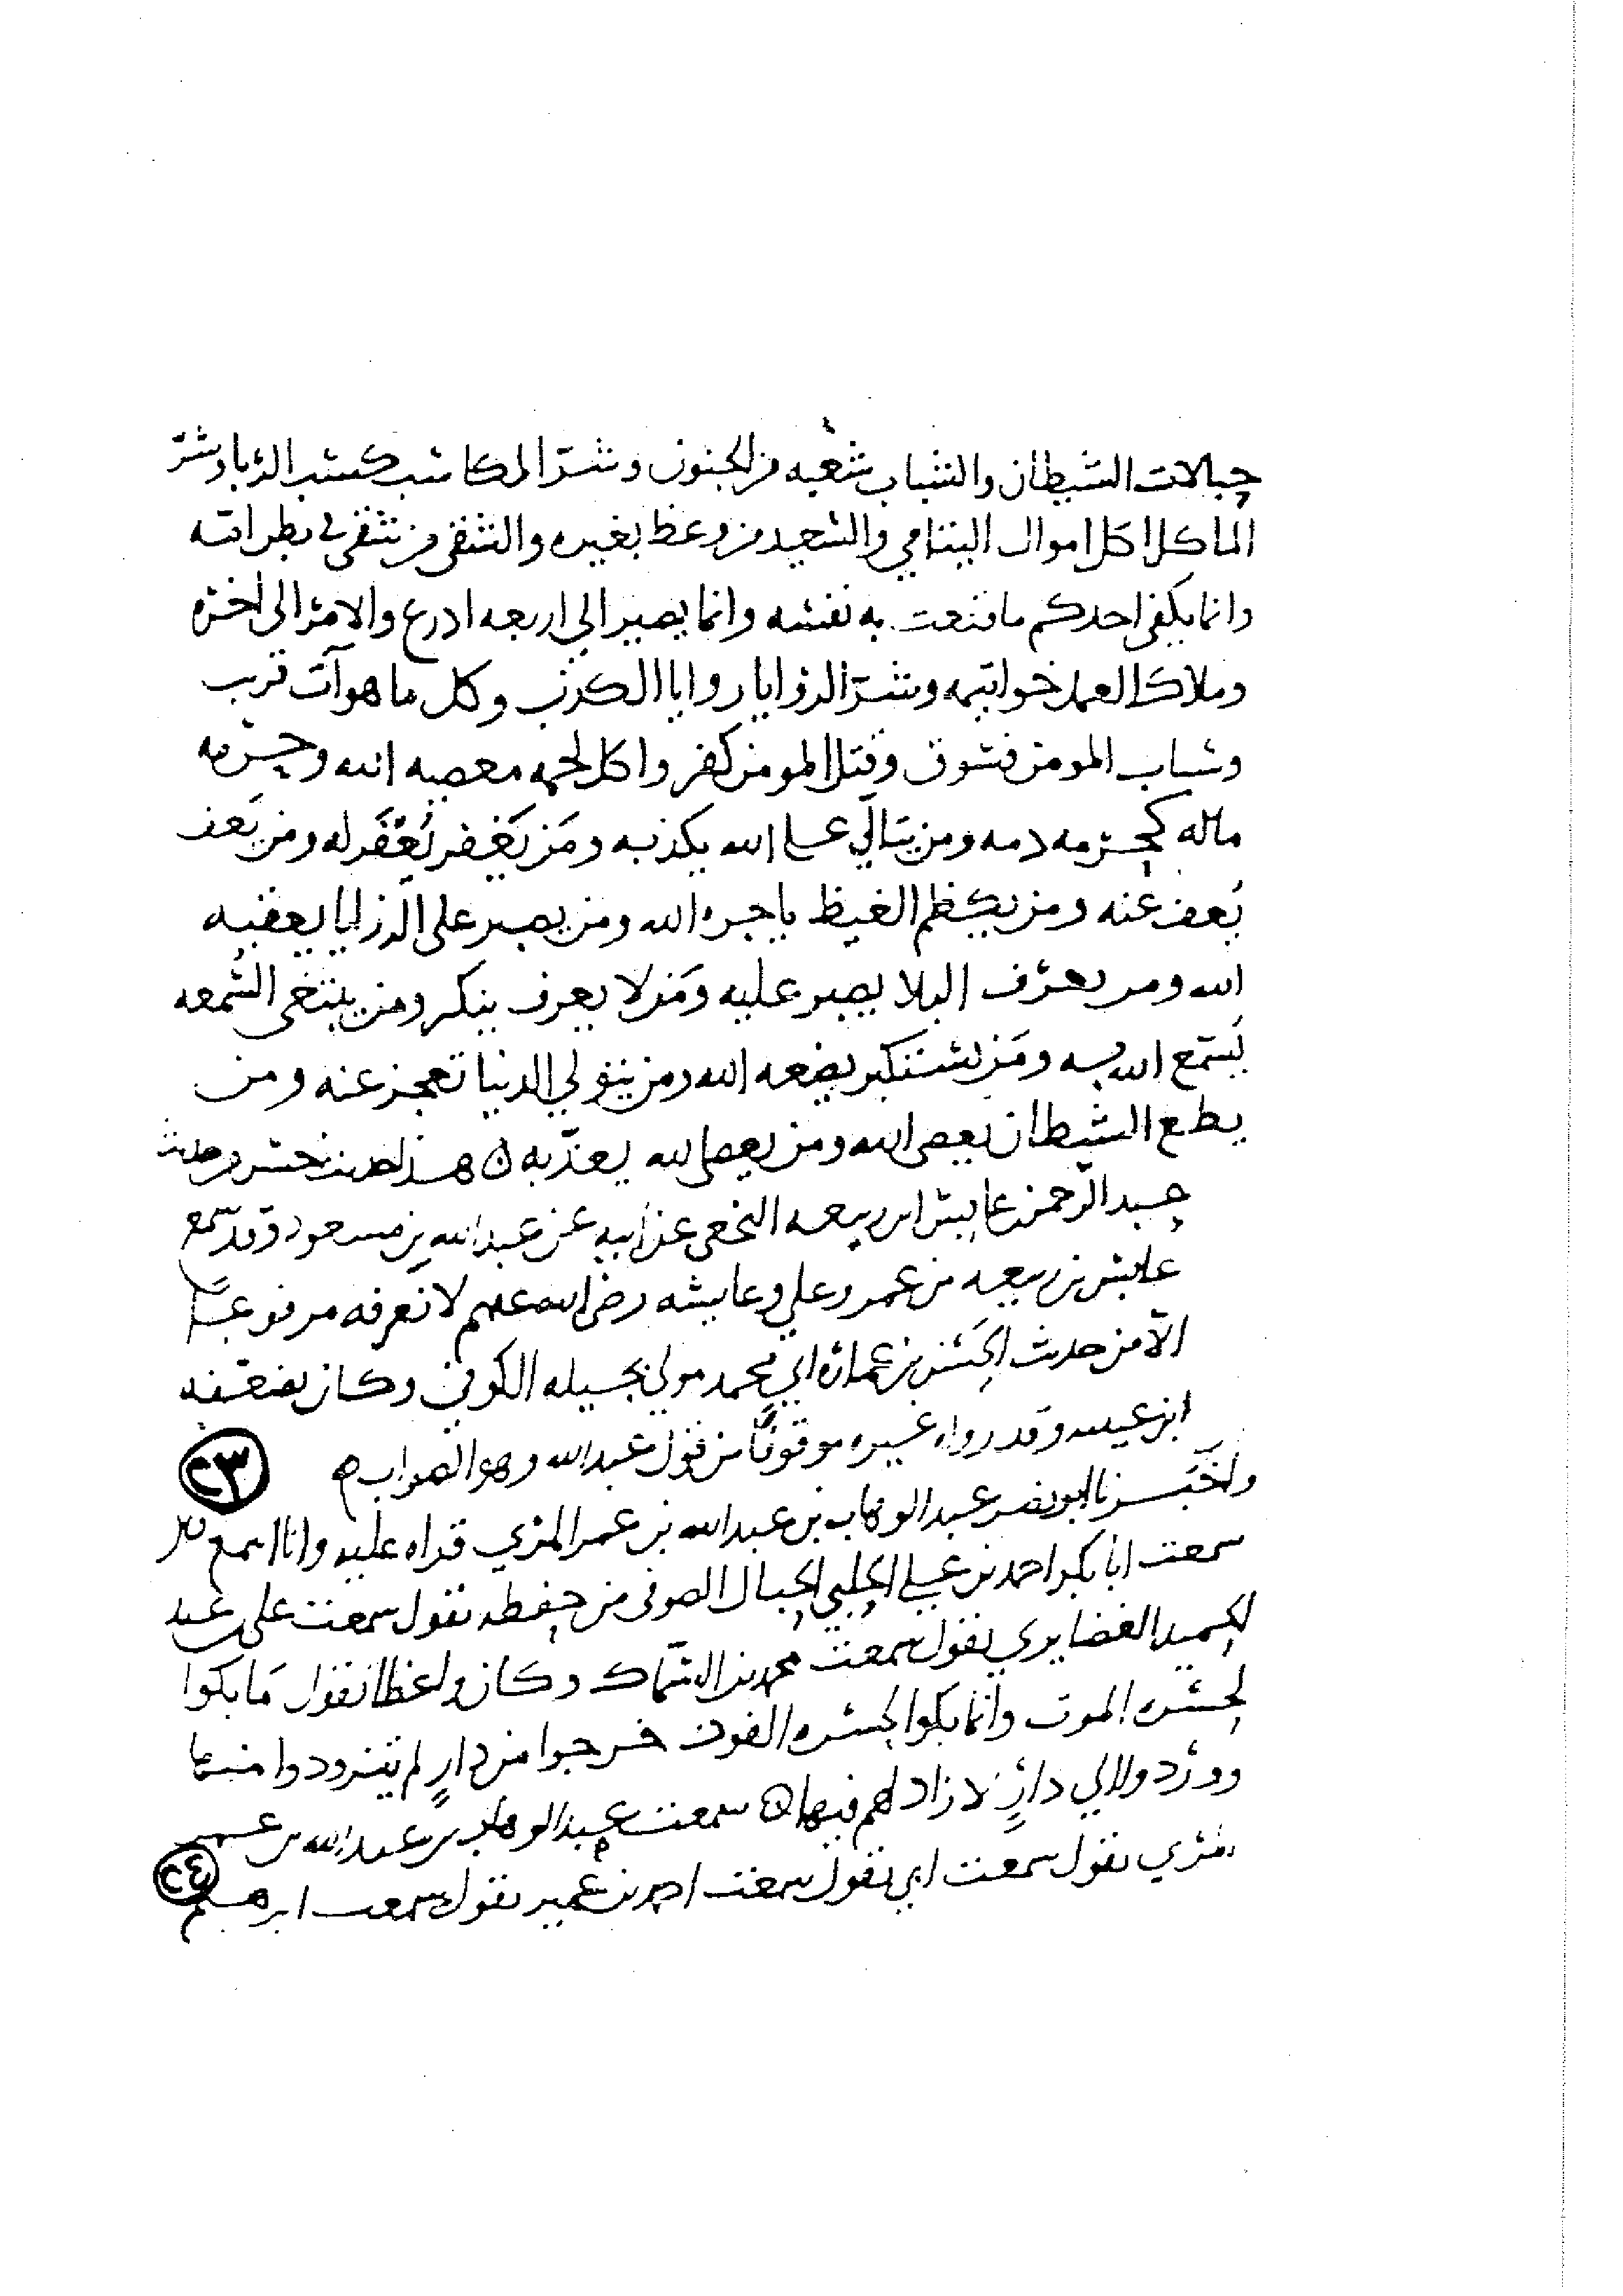 حبالات الشيطان والشباب شعبه من الجنون وشر المكاسب كسب الربا وشر
الماكل اكل اموال اليتامي والسعيد من وعظ بغيره والشقى من شقى في بطن امه
وانما يكفى احدكم ما قنعت به نفسه وانما يصير الي اربعه اذرع والامر الى اخره
وملاك العمل خواتيمه وشر الروايا روايا الكذب وكل ما هو آت قريب
وسباب المومن فسوق وقتل المومن كفر واكل لحمه معصيه الله وحرمه
ماله كحرمه دمه ومن يتالي على الله يكذبه ومَن يَغفر يُغفَر له ومن يَعف
يُعف عنه ومن يكظم الغيظ ياجره الله ومن يصبر على الرزايا يعقبه
الله ومن يعرف البلا يصبر عليه ومَن لا يعرف ينكر ومن يبتغى السُمعه
يُسمّع الله به ومَن يستكبر يضعه الله ومن يتولي الدنيا تعجز عنه ومن
يطع الشيطان يعصى الله ومن يعصى الله يعذّبه ن هذا حديث حسن من حديث
عبد الرحمن عابس ابن ربيعه النخعى عن ابيه عن عبد الله بن مسعود وقد سمع
عابس بن ربيعه من عمر وعلي وعايشه رضى الله عنهم لا نعرفه مرفوعًا
الّا من حديث الحسن بن عماره ابي محمد مولي بجيله الكوفى وكان يضعّفه
ابن عيينه وقد رواه غيره موقوفًا من قول عبد الله وهو الصواب ه
٢٣
واخبَرنا ابو نصر عبد الوهاب بن عبد الله بن عمر المري قراه عليه وانا اسمع قال
سمعت ابا بكر احمد بن علي الحلبي الحبال الصوفى من حفظه يقول سمعت على بن عبد
الحميد الغضايري يقول سمعت محمد بن السّماك وكان واعظا يقول مَا بكوا
لحسره الموت وانما بكوا لحسره الفوت خرجوا من دارٍ لم يتزودوا منها
ووردوا الي دارٍ لا زاد لهم فيها ه سمعت عبد الوهاب بن عبد الله بن عمر
المري يقول سمعت ابي يقول سمعت احمد بن عمير يقول سمعت ابرهيم
٢٤